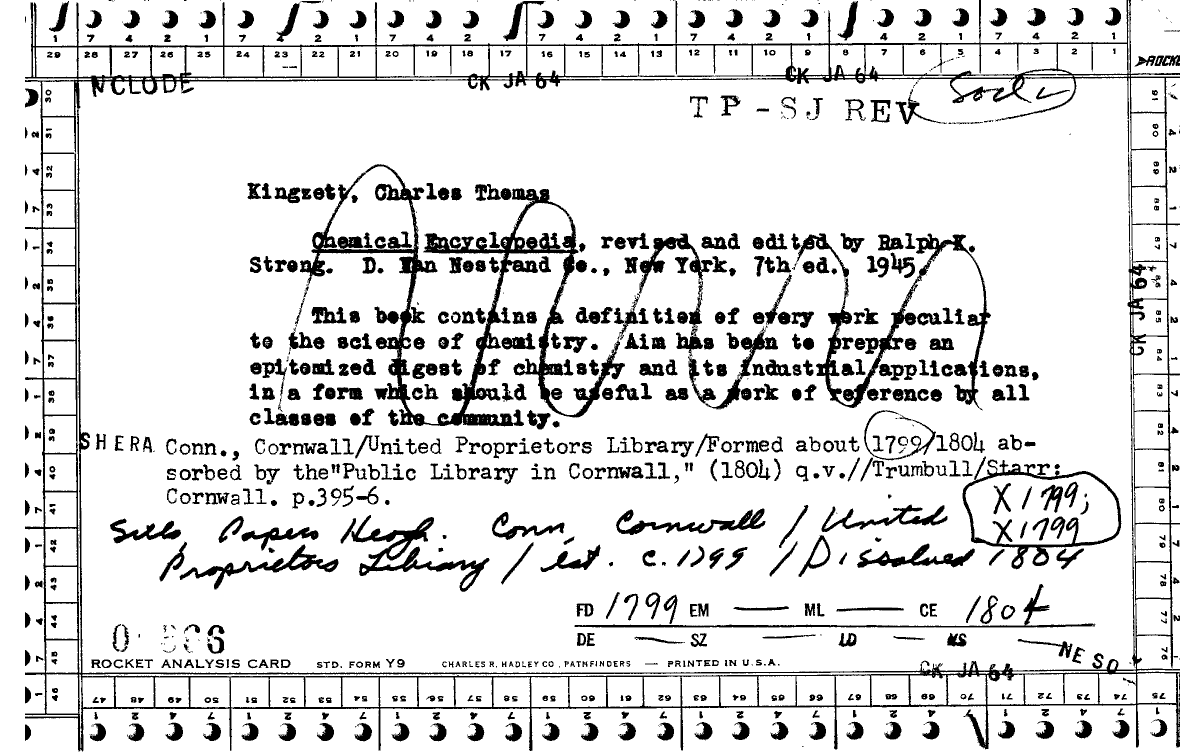 1 7 4 2 1 7 4 2 1 7 4 2 1 7 4 2 1 7 4 2 1 7 4 2 1 7 4 2 1
29 28 27 26 25 24 23 22 21 20 19 18 17 16 15 14 13 12 11 10 9 8 7 6 5 4 3 2 1
ROCKE
NCLUDE CK JA 64 CK JA 64
TP-SJ REV
Kingzett, Charles Thomas
Chemical Encyclopedia, revised and edited by Ralph K.
Strong. D. Van Nostrand Co., New York, 7th ed., 1945.
This book contains a definition of every work peculiar
to the science of chemistry. Aim has been to prepare an
epitomized digest of chemistry and its industrial applications,
in a form which should be useful as a work of reference by all
classes of the community.
SHERA Conn., Cornwall/United Proprietors Library/Formed about 1799/1804 ab-
sorbed by the"Public Library in Cornwall," (1804) q.v.//Trumbull/Starr:
Cornwall. p.395-6.
X 1799;
X 1799
Sills Papers Keogh. Conn, Cornwall / United
Proprietors Library / est. c.1799 / Dissolved 1804
FD 1799 EM — ML — CE 1804
DE — SZ — LD — MS —
NE SO
0 566
ROCKET ANALYSIS CARD STD. FORM Y9 CHARLES R. HADLEY CO., PATHFINDERS — PRINTED IN U.S.A.
CK JA 64
CK JA 64
30 31 32 33 34 35 36 37 38 39 40 41 42 43 44 45 46
91 90 89 88 87 86 85 84 83 82 81 80 79 78 77 76 75
47 48 49 50 51 52 53 54 55 56 57 58 59 60 61 62 63 64 65 66 67 68 69 70 71 72 73 74 75